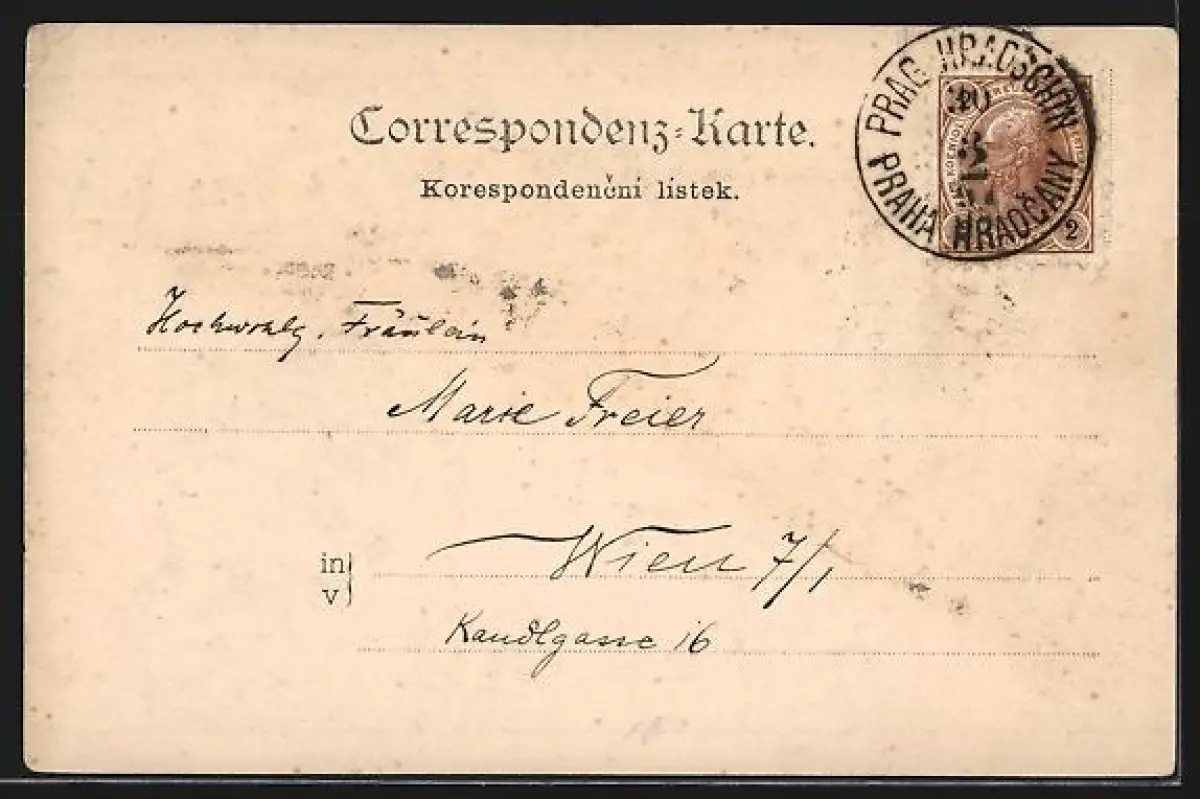 Correspondenz-Karte.
Korespondenční lístek.
PRAG HRADSCHIN
PRAHA HRADČANY
2
Hochwohlg. Fräulein
Marie Freier
in
v
Wien 7/1
Kandlgasse 16